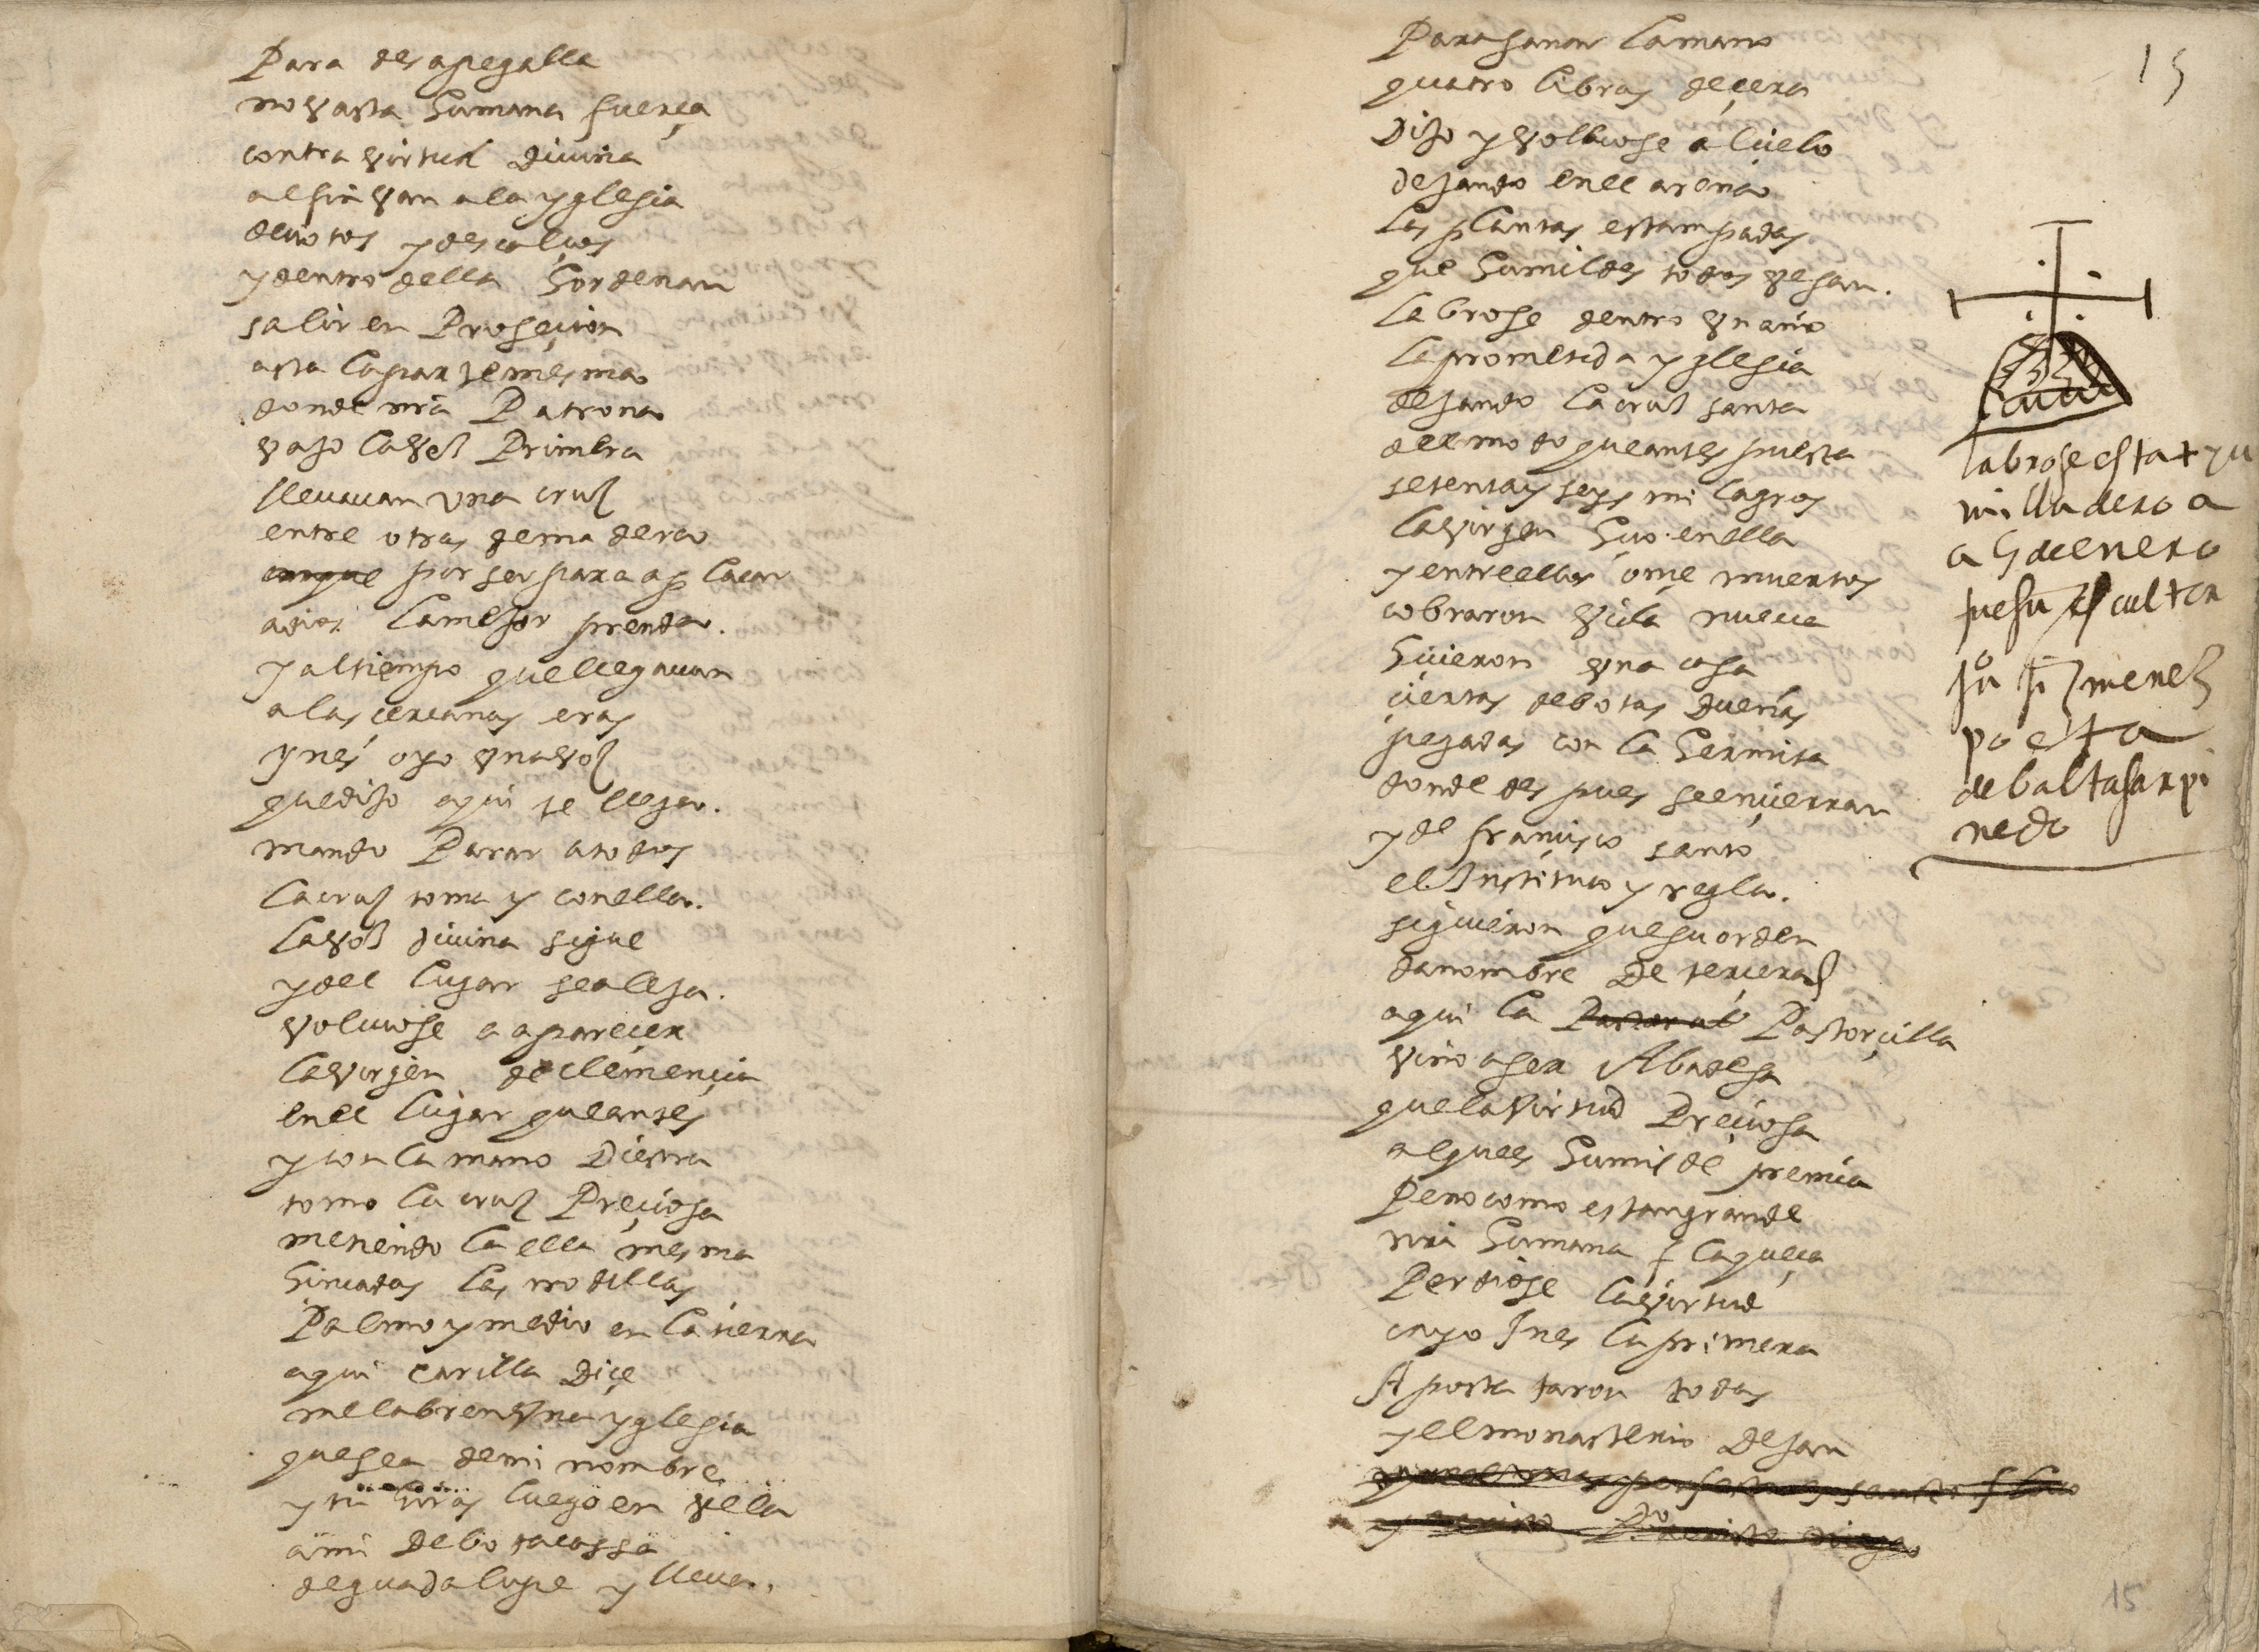 Para desapegalla
no vasta humana fuerça
contra virtud diuina
al fin van a la yglesia
deuotos y descalços
y dentro della hordenan
salir en Proseçion
asta la parte mesma
donde nra Patrona
vajo la vez Primera
lleuauan vna cruz
entre otras de madera
aunque por ser para aplacar
a dios la mejor prenda.
y al tiempo que llegauan
a las çercanas eras
ynes oyo vna voz
que dijo aqui te llega.
mando Parar a todos
la cruz toma y con ella.
la voz diuina sigue
y del lugar se aleja.
voluiose a apareçer
la virgen de clemençia
en el lugar que antes
y con la mano Diestra
tomo la cruz Preçiosa
metiendola ella mesma
hincadas las rrodillas
Palmo y medio en la tierra
aqui carilla Diçe
me labren vna yglesia
que sea de mi nombre
y tu yras luego en vela
a mi debota cassa
de guadalupe y lleua.
Para sanar la mano
quatro libras de çera
Dijo y volbiose al çielo
dejando en el arena
las plantas estampadas
que humildes todos vesan.
labrose dentro vn año
la prometida yglesia
dejando la cruz santa
del modo que antes puesta
setenta y seys milagros
la virgen hiço en ella
y entre ellos onçe muertos
cobraron vida nueua
hiçieron vna casa
çiertas debotas dueñas
pegadas con la hermita
donde despues se ençierran
y de françisco santo
el Instituto y regla.
siguieron que su orden
da nombre De terçeras
aqui la Pastoral Pastorçilla
vino a ser Abadesa
que la virtud Preçiosa
al ques humilde premia
Pero como es tan grande
nra humana flaqueça
Perdiose la virtud
cayo Ines la primera
Apostataron todas
y el monasterio Dejan
15
labrose esta + y u
milladero a
a 5 de enero
fue su escultor
ju° ximenez
poeta
de baltasar pi
nedo
15